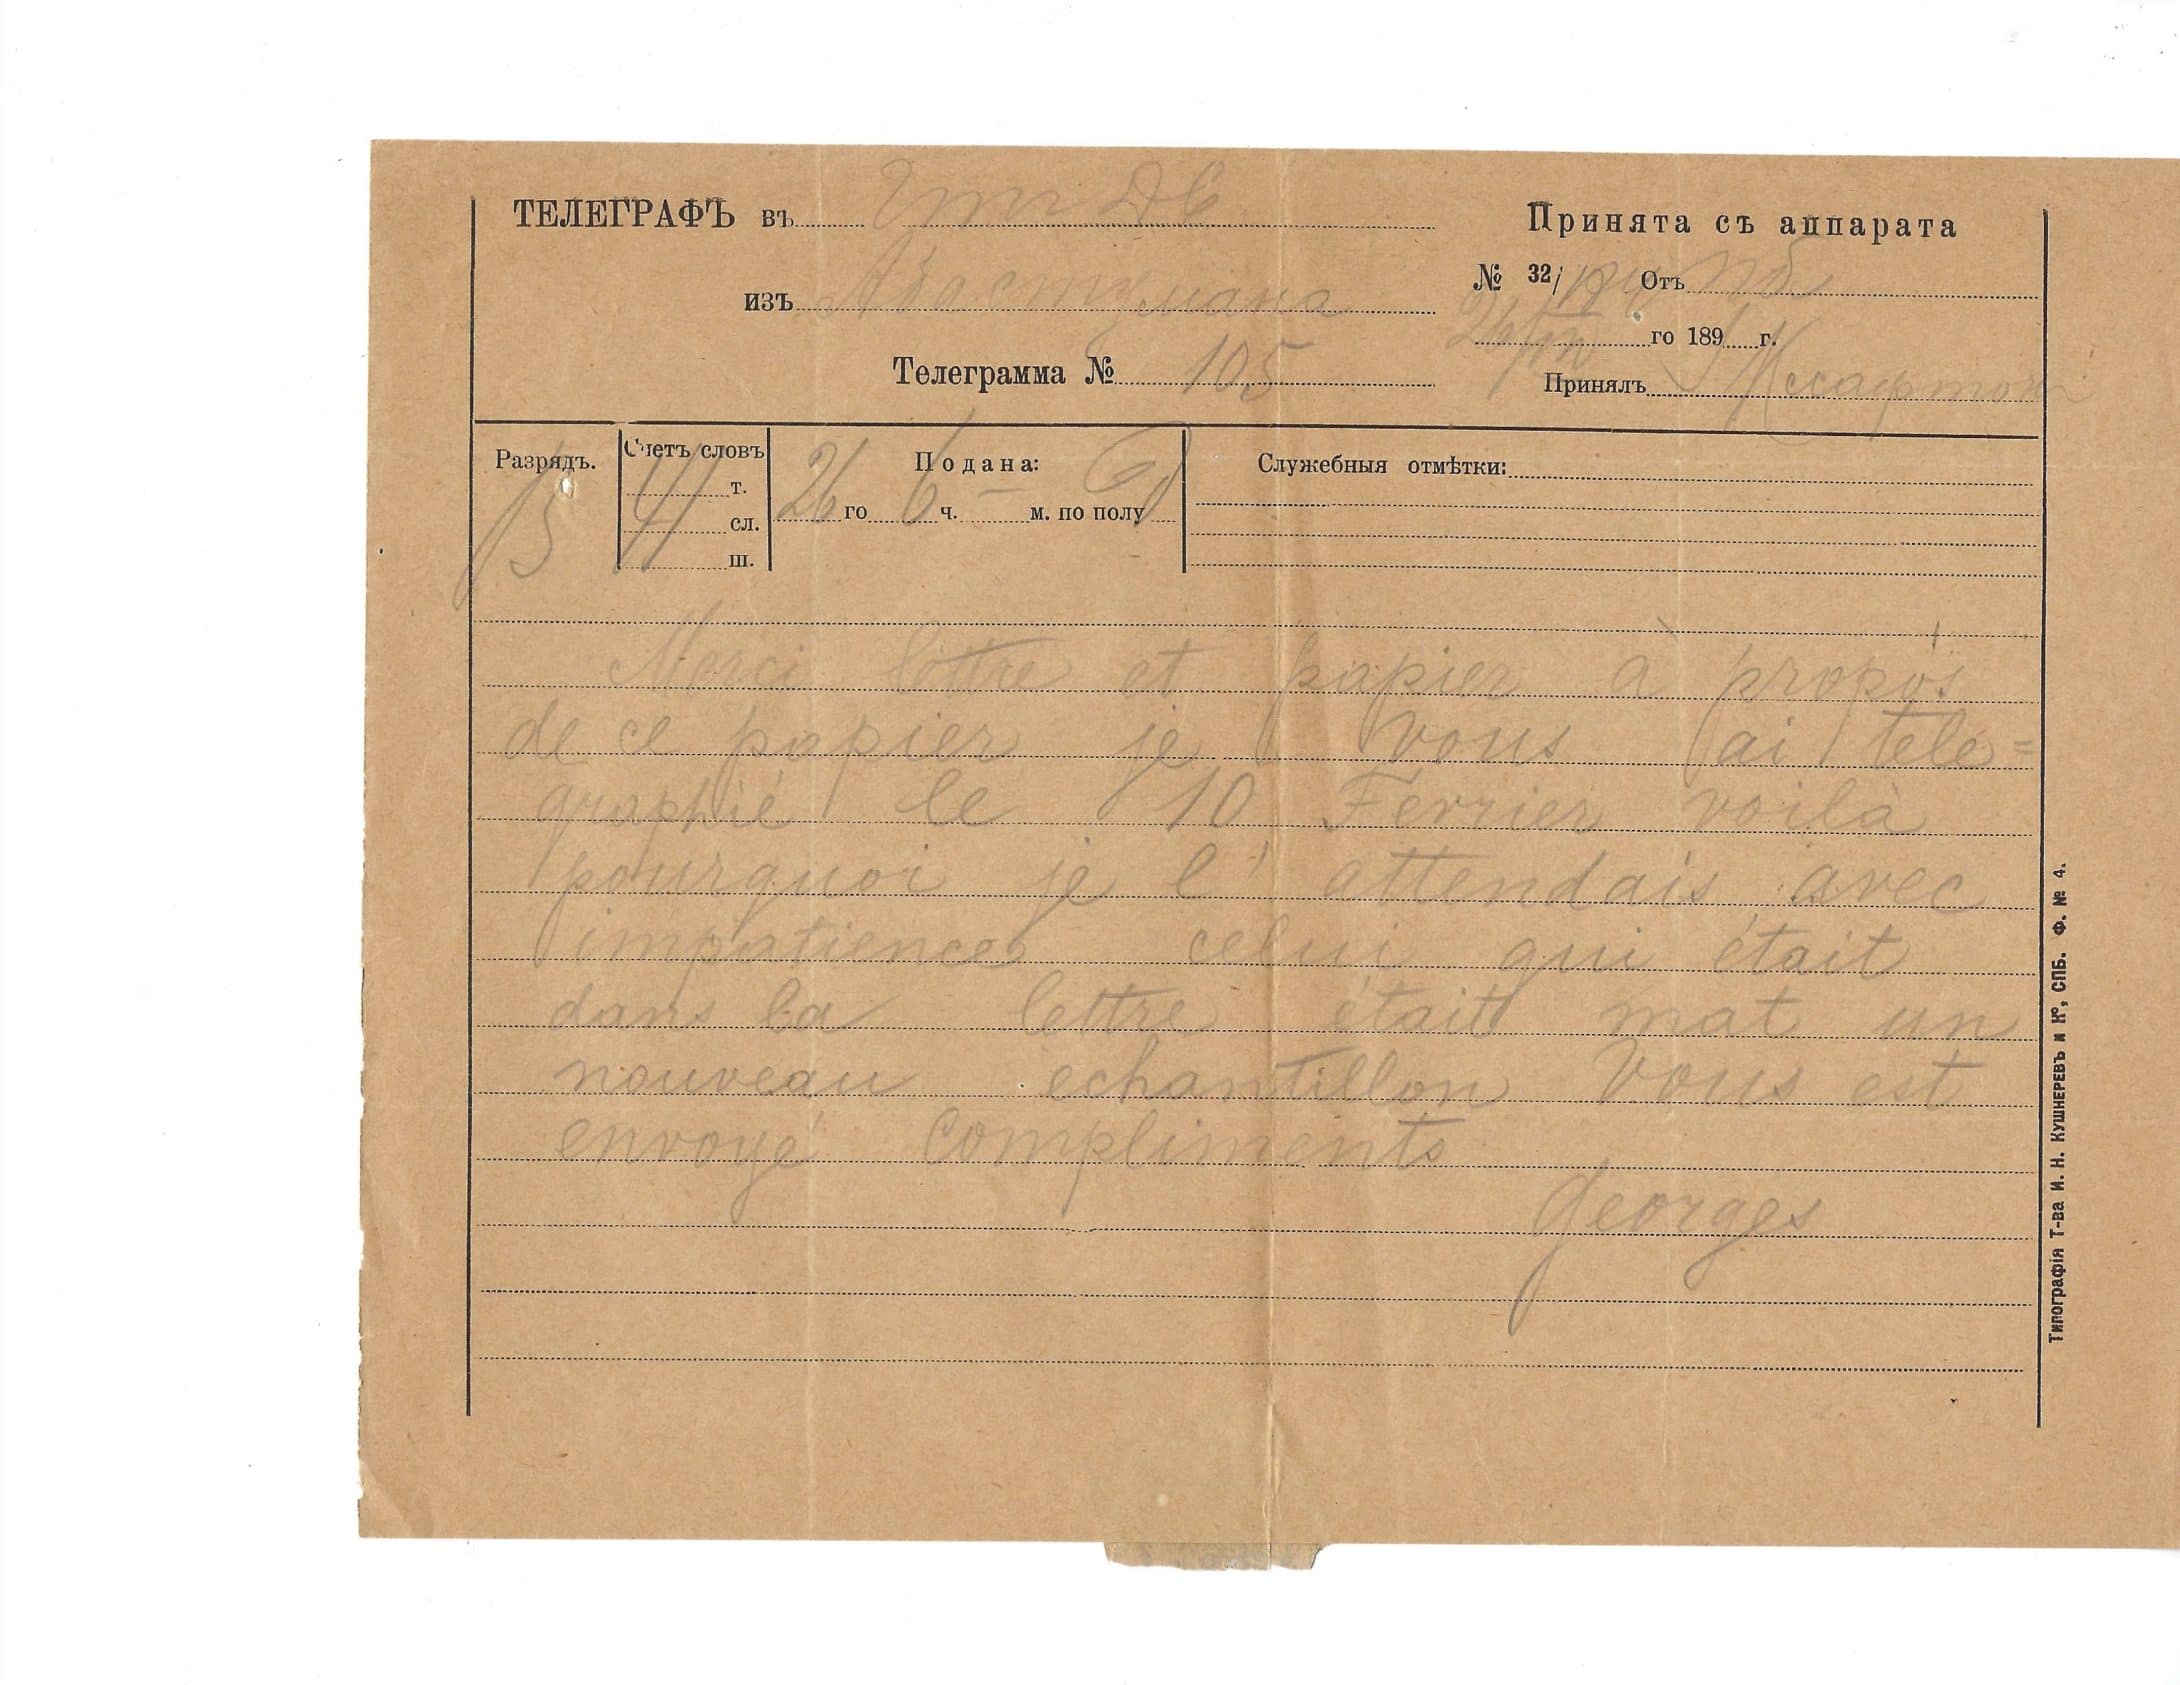 ТЕЛЕГРАФЪ въ
изъ Абастумана
Телеграмма № 105
Принята съ аппарата
№ 32/ Отъ
26/III го 189 г.
Принялъ
Разрядъ.
Счетъ словъ
41 т.
сл.
ш.
Подана:
26 го 6 ч. — м. по полу
Служебныя отмѣтки:
Merci lettre et papier à propos
de ce papier je vous ai télé=
graphié le 10 Fevrier voilà
pourquoi je l'attendais avec
impatience celui qui était
dans la lettre était mat un
nouveau echantillon vous est
envoyé compliments
Georges
Типографія Т-ва И. Н. Кушнеревъ и Кº, СПБ. Ф. № 4.